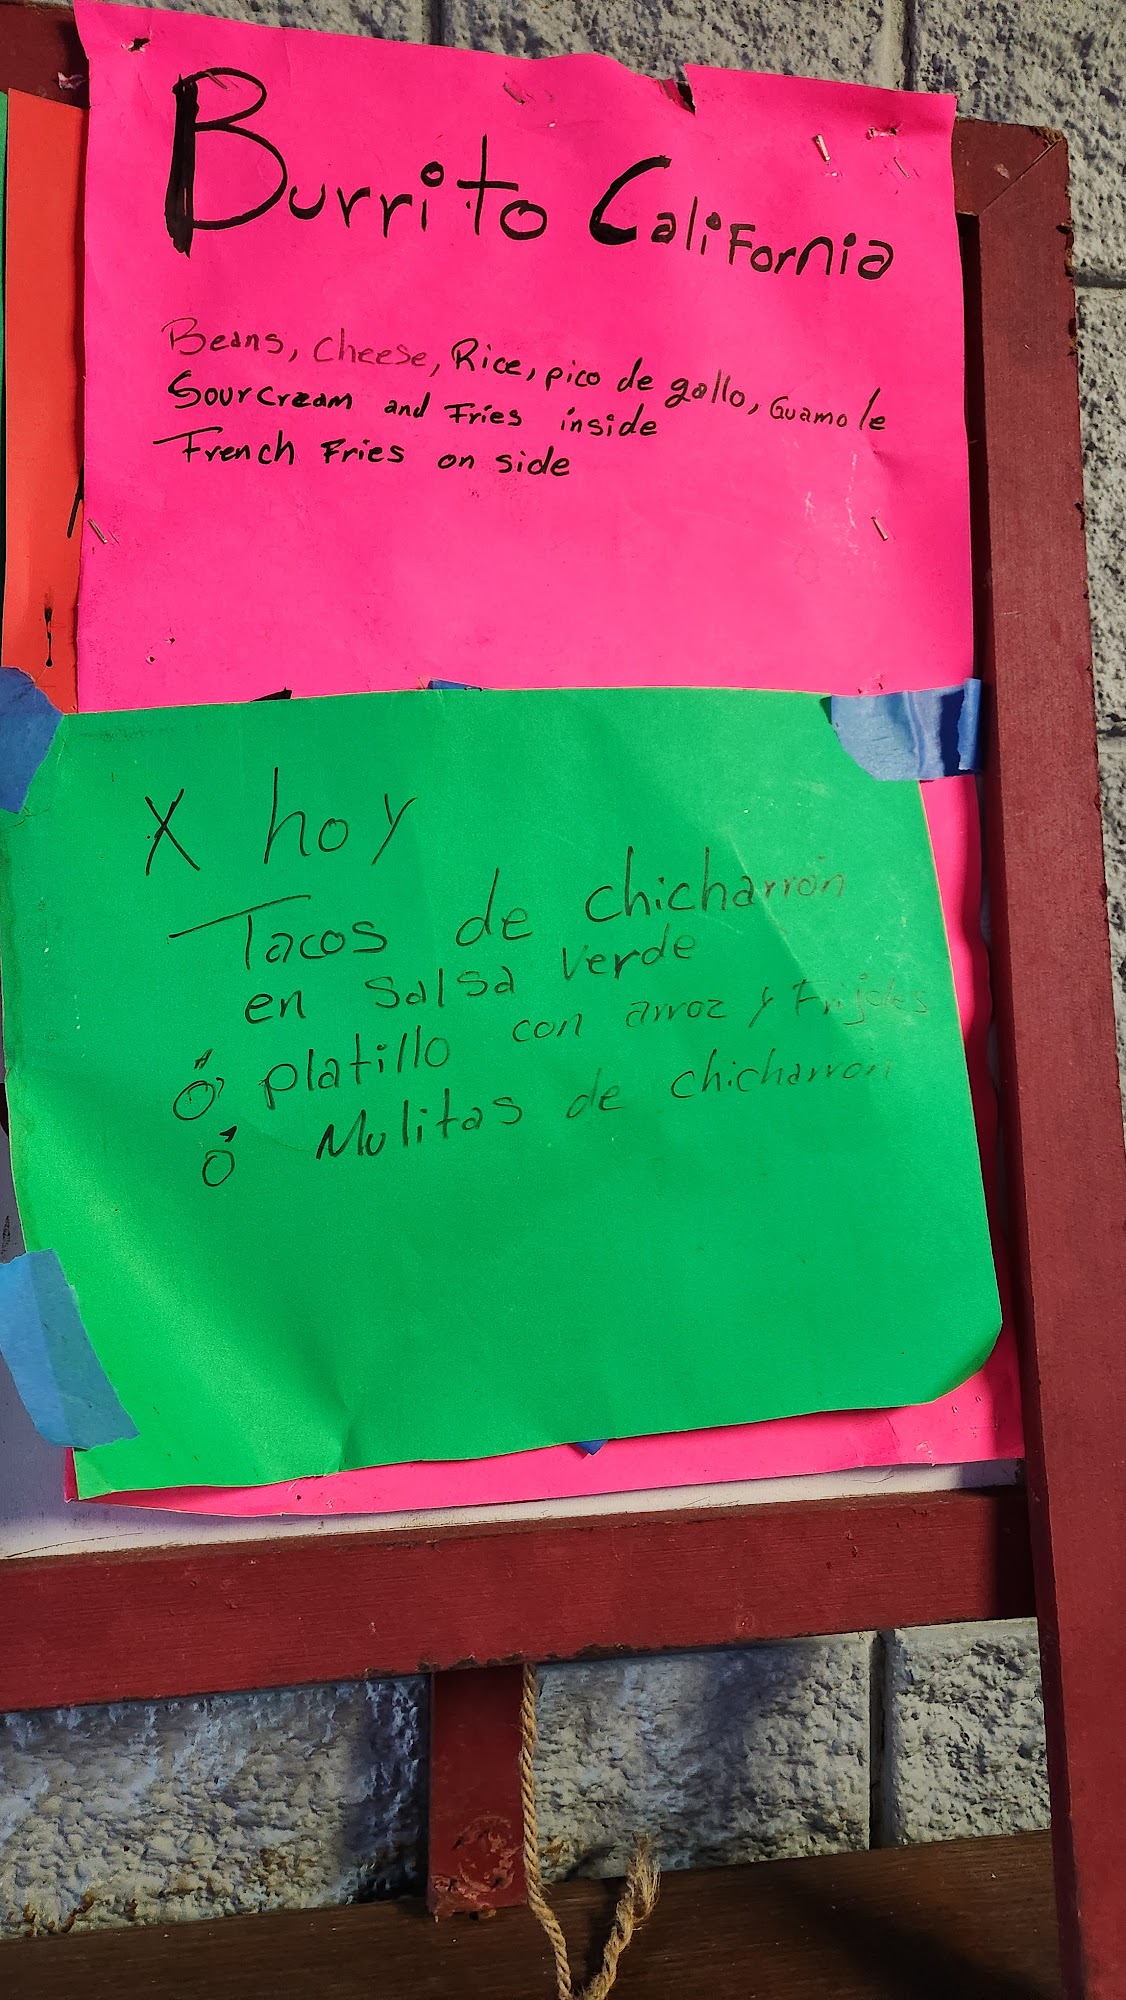 Burrito California
Beans, cheese, Rice, pico de gallo, Guamole
Sour cream and Fries inside
French Fries on side
X hoy
Tacos de chicharrón
en salsa verde
Ó platillo con arroz y Frijoles
Ó Mulitas de chicharron